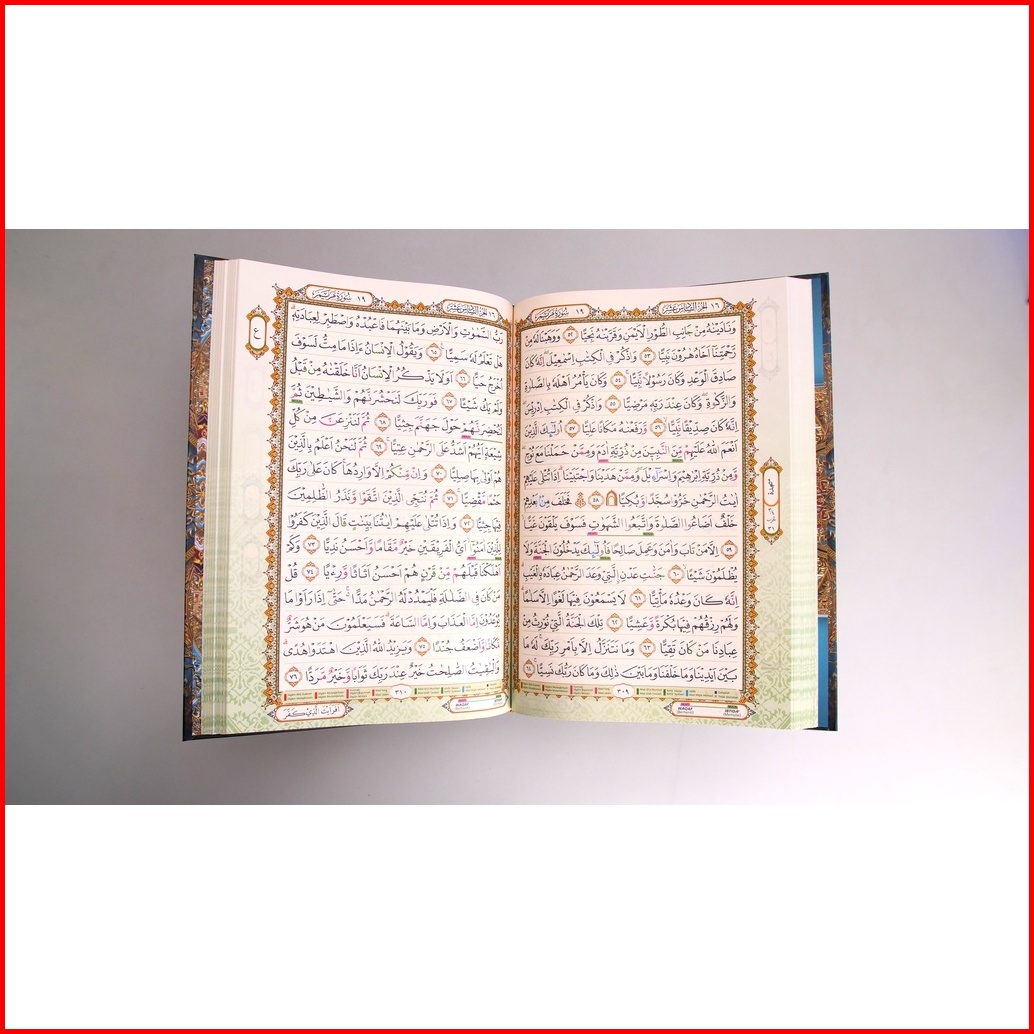 ١٦ الجزء السادس عشر
سورة مريم ١٩
وَنَادَيْنٰهُ مِنْ جَانِبِ الطُّوْرِ الْاَيْمَنِ وَقَرَّبْنٰهُ نَجِيًّا ٥٢ وَوَهَبْنَا لَهٗ مِنْ
رَّحْمَتِنَآ اَخَاهُ هٰرُوْنَ نَبِيًّا ٥٣ وَاذْكُرْ فِى الْكِتٰبِ اِسْمٰعِيْلَ ۖاِنَّهٗ كَانَ
صَادِقَ الْوَعْدِ وَكَانَ رَسُوْلًا نَّبِيًّا ۚ ٥٤ وَكَانَ يَأْمُرُ اَهْلَهٗ بِالصَّلٰوةِ
وَالزَّكٰوةِ ۖوَكَانَ عِنْدَ رَبِّهٖ مَرْضِيًّا ٥٥ وَاذْكُرْ فِى الْكِتٰبِ اِدْرِيْسَ ۖ
اِنَّهٗ كَانَ صِدِّيْقًا نَّبِيًّا ۙ ٥٦ وَّرَفَعْنٰهُ مَكَانًا عَلِيًّا ٥٧ اُولٰۤىِٕكَ الَّذِيْنَ
اَنْعَمَ اللّٰهُ عَلَيْهِمْ مِّنَ النَّبِيّٖنَ مِنْ ذُرِّيَّةِ اٰدَمَ وَمِمَّنْ حَمَلْنَا مَعَ نُوْحٍ ۖ
وَّمِنْ ذُرِّيَّةِ اِبْرٰهِيْمَ وَاِسْرَاۤءِيْلَ ۖ وَمِمَّنْ هَدَيْنَا وَاجْتَبَيْنَا ۗاِذَا تُتْلٰى عَلَيْهِمْ
اٰيٰتُ الرَّحْمٰنِ خَرُّوْا سُجَّدًا وَّبُكِيًّا ۩ ٥٨ فَخَلَفَ مِنْۢ بَعْدِهِمْ
خَلْفٌ اَضَاعُوا الصَّلٰوةَ وَاتَّبَعُوا الشَّهَوٰتِ فَسَوْفَ يَلْقَوْنَ غَيًّا ۙ
٥٩ اِلَّا مَنْ تَابَ وَاٰمَنَ وَعَمِلَ صَالِحًا فَاُولٰۤىِٕكَ يَدْخُلُوْنَ الْجَنَّةَ وَلَا
يُظْلَمُوْنَ شَيْـًٔا ۙ ٦٠ جَنّٰتِ عَدْنِ ِۨالَّتِيْ وَعَدَ الرَّحْمٰنُ عِبَادَهٗ بِالْغَيْبِۗ
اِنَّهٗ كَانَ وَعْدُهٗ مَأْتِيًّا ٦١ لَا يَسْمَعُوْنَ فِيْهَا لَغْوًا اِلَّا سَلٰمًاۗ
وَلَهُمْ رِزْقُهُمْ فِيْهَا بُكْرَةً وَّعَشِيًّا ٦٢ تِلْكَ الْجَنَّةُ الَّتِيْ نُوْرِثُ مِنْ
عِبَادِنَا مَنْ كَانَ تَقِيًّا ٦٣ وَمَا نَتَنَزَّلُ اِلَّا بِاَمْرِ رَبِّكَۚ لَهٗ مَا
بَيْنَ اَيْدِيْنَا وَمَا خَلْفَنَا وَمَا بَيْنَ ذٰلِكَ وَمَا كَانَ رَبُّكَ نَسِيًّا ۚ ٦٤
سجدة
٣٠٩
WAQAF
IBTIDA'
١٦ الجزء السادس عشر
سورة مريم ١٩
رَبُّ السَّمٰوٰتِ وَالْاَرْضِ وَمَا بَيْنَهُمَا فَاعْبُدْهُ وَاصْطَبِرْ لِعِبَادَتِهٖۗ
هَلْ تَعْلَمُ لَهٗ سَمِيًّا ٦٥ وَيَقُوْلُ الْاِنْسَانُ ءَاِذَا مَا مِتُّ لَسَوْفَ
اُخْرَجُ حَيًّا ٦٦ اَوَلَا يَذْكُرُ الْاِنْسَانُ اَنَّا خَلَقْنٰهُ مِنْ قَبْلُ
وَلَمْ يَكُ شَيْـًٔا ٦٧ فَوَرَبِّكَ لَنَحْشُرَنَّهُمْ وَالشَّيٰطِيْنَ ثُمَّ
لَنُحْضِرَنَّهُمْ حَوْلَ جَهَنَّمَ جِثِيًّا ٦٨ ثُمَّ لَنَنْزِعَنَّ مِنْ كُلِّ
شِيْعَةٍ اَيُّهُمْ اَشَدُّ عَلَى الرَّحْمٰنِ عِتِيًّا ۚ ٦٩ ثُمَّ لَنَحْنُ اَعْلَمُ بِالَّذِيْنَ
هُمْ اَوْلٰى بِهَا صِلِيًّا ٧٠ وَاِنْ مِّنْكُمْ اِلَّا وَارِدُهَا ۚ كَانَ عَلٰى رَبِّكَ
حَتْمًا مَّقْضِيًّا ۚ ٧١ ثُمَّ نُنَجِّى الَّذِيْنَ اتَّقَوْا وَّنَذَرُ الظّٰلِمِيْنَ
فِيْهَا جِثِيًّا ٧٢ وَاِذَا تُتْلٰى عَلَيْهِمْ اٰيٰتُنَا بَيِّنٰتٍ قَالَ الَّذِيْنَ كَفَرُوْا
لِلَّذِيْنَ اٰمَنُوْٓا ۙاَيُّ الْفَرِيْقَيْنِ خَيْرٌ مَّقَامًا وَّاَحْسَنُ نَدِيًّا ٧٣ وَكَمْ
اَهْلَكْنَا قَبْلَهُمْ مِّنْ قَرْنٍ هُمْ اَحْسَنُ اَثَاثًا وَّرِءْيًا ٧٤ قُلْ
مَنْ كَانَ فِى الضَّلٰلَةِ فَلْيَمْدُدْ لَهُ الرَّحْمٰنُ مَدًّا ەۚ حَتّٰىٓ اِذَا رَاَوْا مَا
يُوْعَدُوْنَ اِمَّا الْعَذَابَ وَاِمَّا السَّاعَةَ ۗفَسَيَعْلَمُوْنَ مَنْ هُوَ شَرٌّ
مَّكَانًا وَّاَضْعَفُ جُنْدًا ٧٥ وَيَزِيْدُ اللّٰهُ الَّذِيْنَ اهْتَدَوْا هُدًىۗ
وَالْبٰقِيٰتُ الصّٰلِحٰتُ خَيْرٌ عِنْدَ رَبِّكَ ثَوَابًا وَّخَيْرٌ مَّرَدًّا ٧٦
ع
٣١٠
WAQAF
افرايت الذي كفر